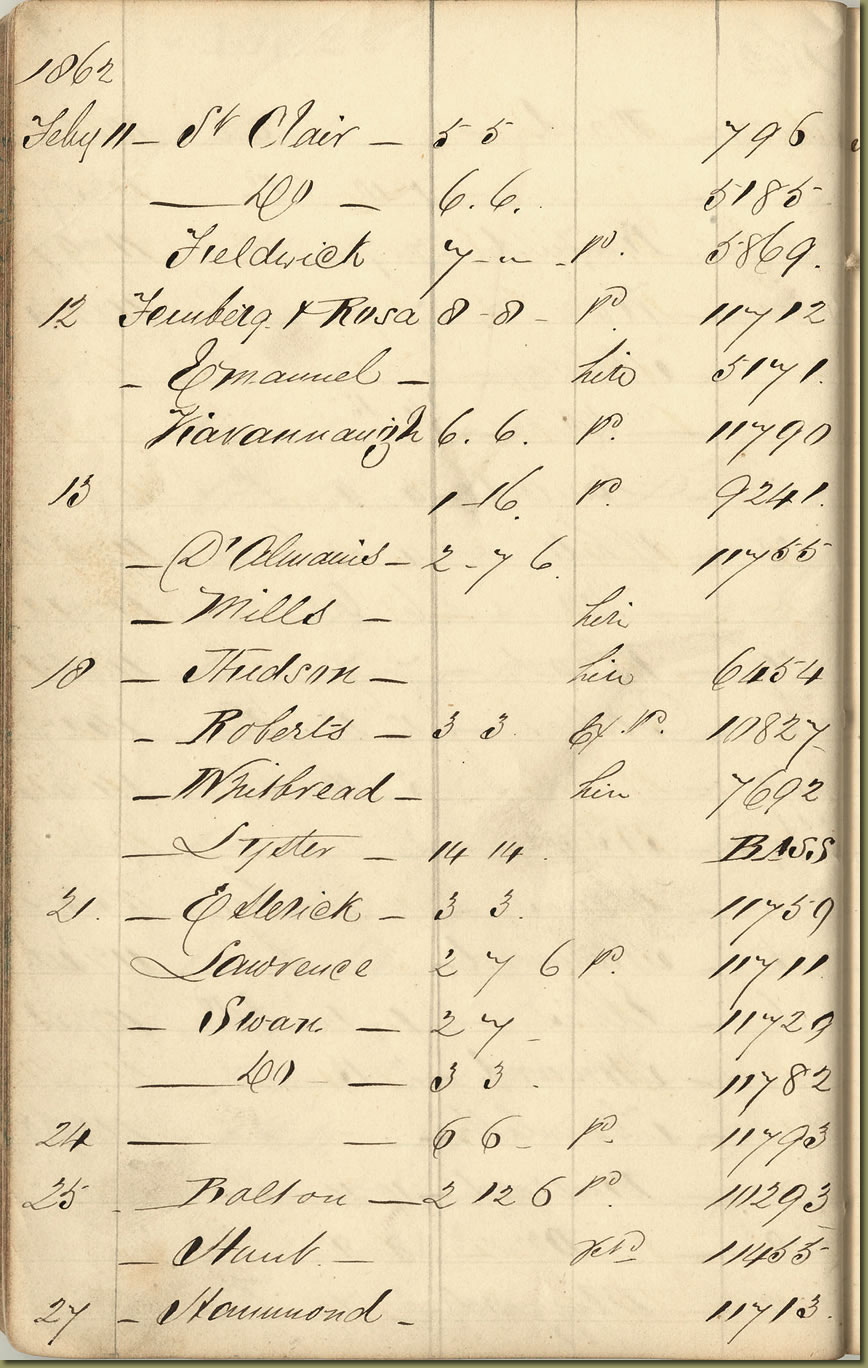 1862
Feby 11 — St Clair — 5 5 796
— Do — 6. 6. 5185
Fieldwick 7 - " - Pd. 5869.
12 Feinberg & Rosa 8 - 8 - Pd 11712
— Emanuel — hire 5171.
Kavannaugh 6. 6. Pd. 11790
13 1 - 16. Pd 9241.
— D'Almains — 2 - 7 6. 11755
— Mills — hire
18 — Hudson — hire 6454
— Roberts — 3 3. Ex. Pd. 10827
— Whitbread — hire 7692
— Lyster — 14 14. BASS
21. — Etterick — 3 3. 11759
Lawrence 2 7 6 Pd. 11711
— Swan — 2 7 - 11729
— Do — 3 3. 11782
24 — — 6 6 - Pd 11793
25 - Bolton — 2 12 6 Pd 10293
— Haut. — 11455
27 — Hammond - 11713.